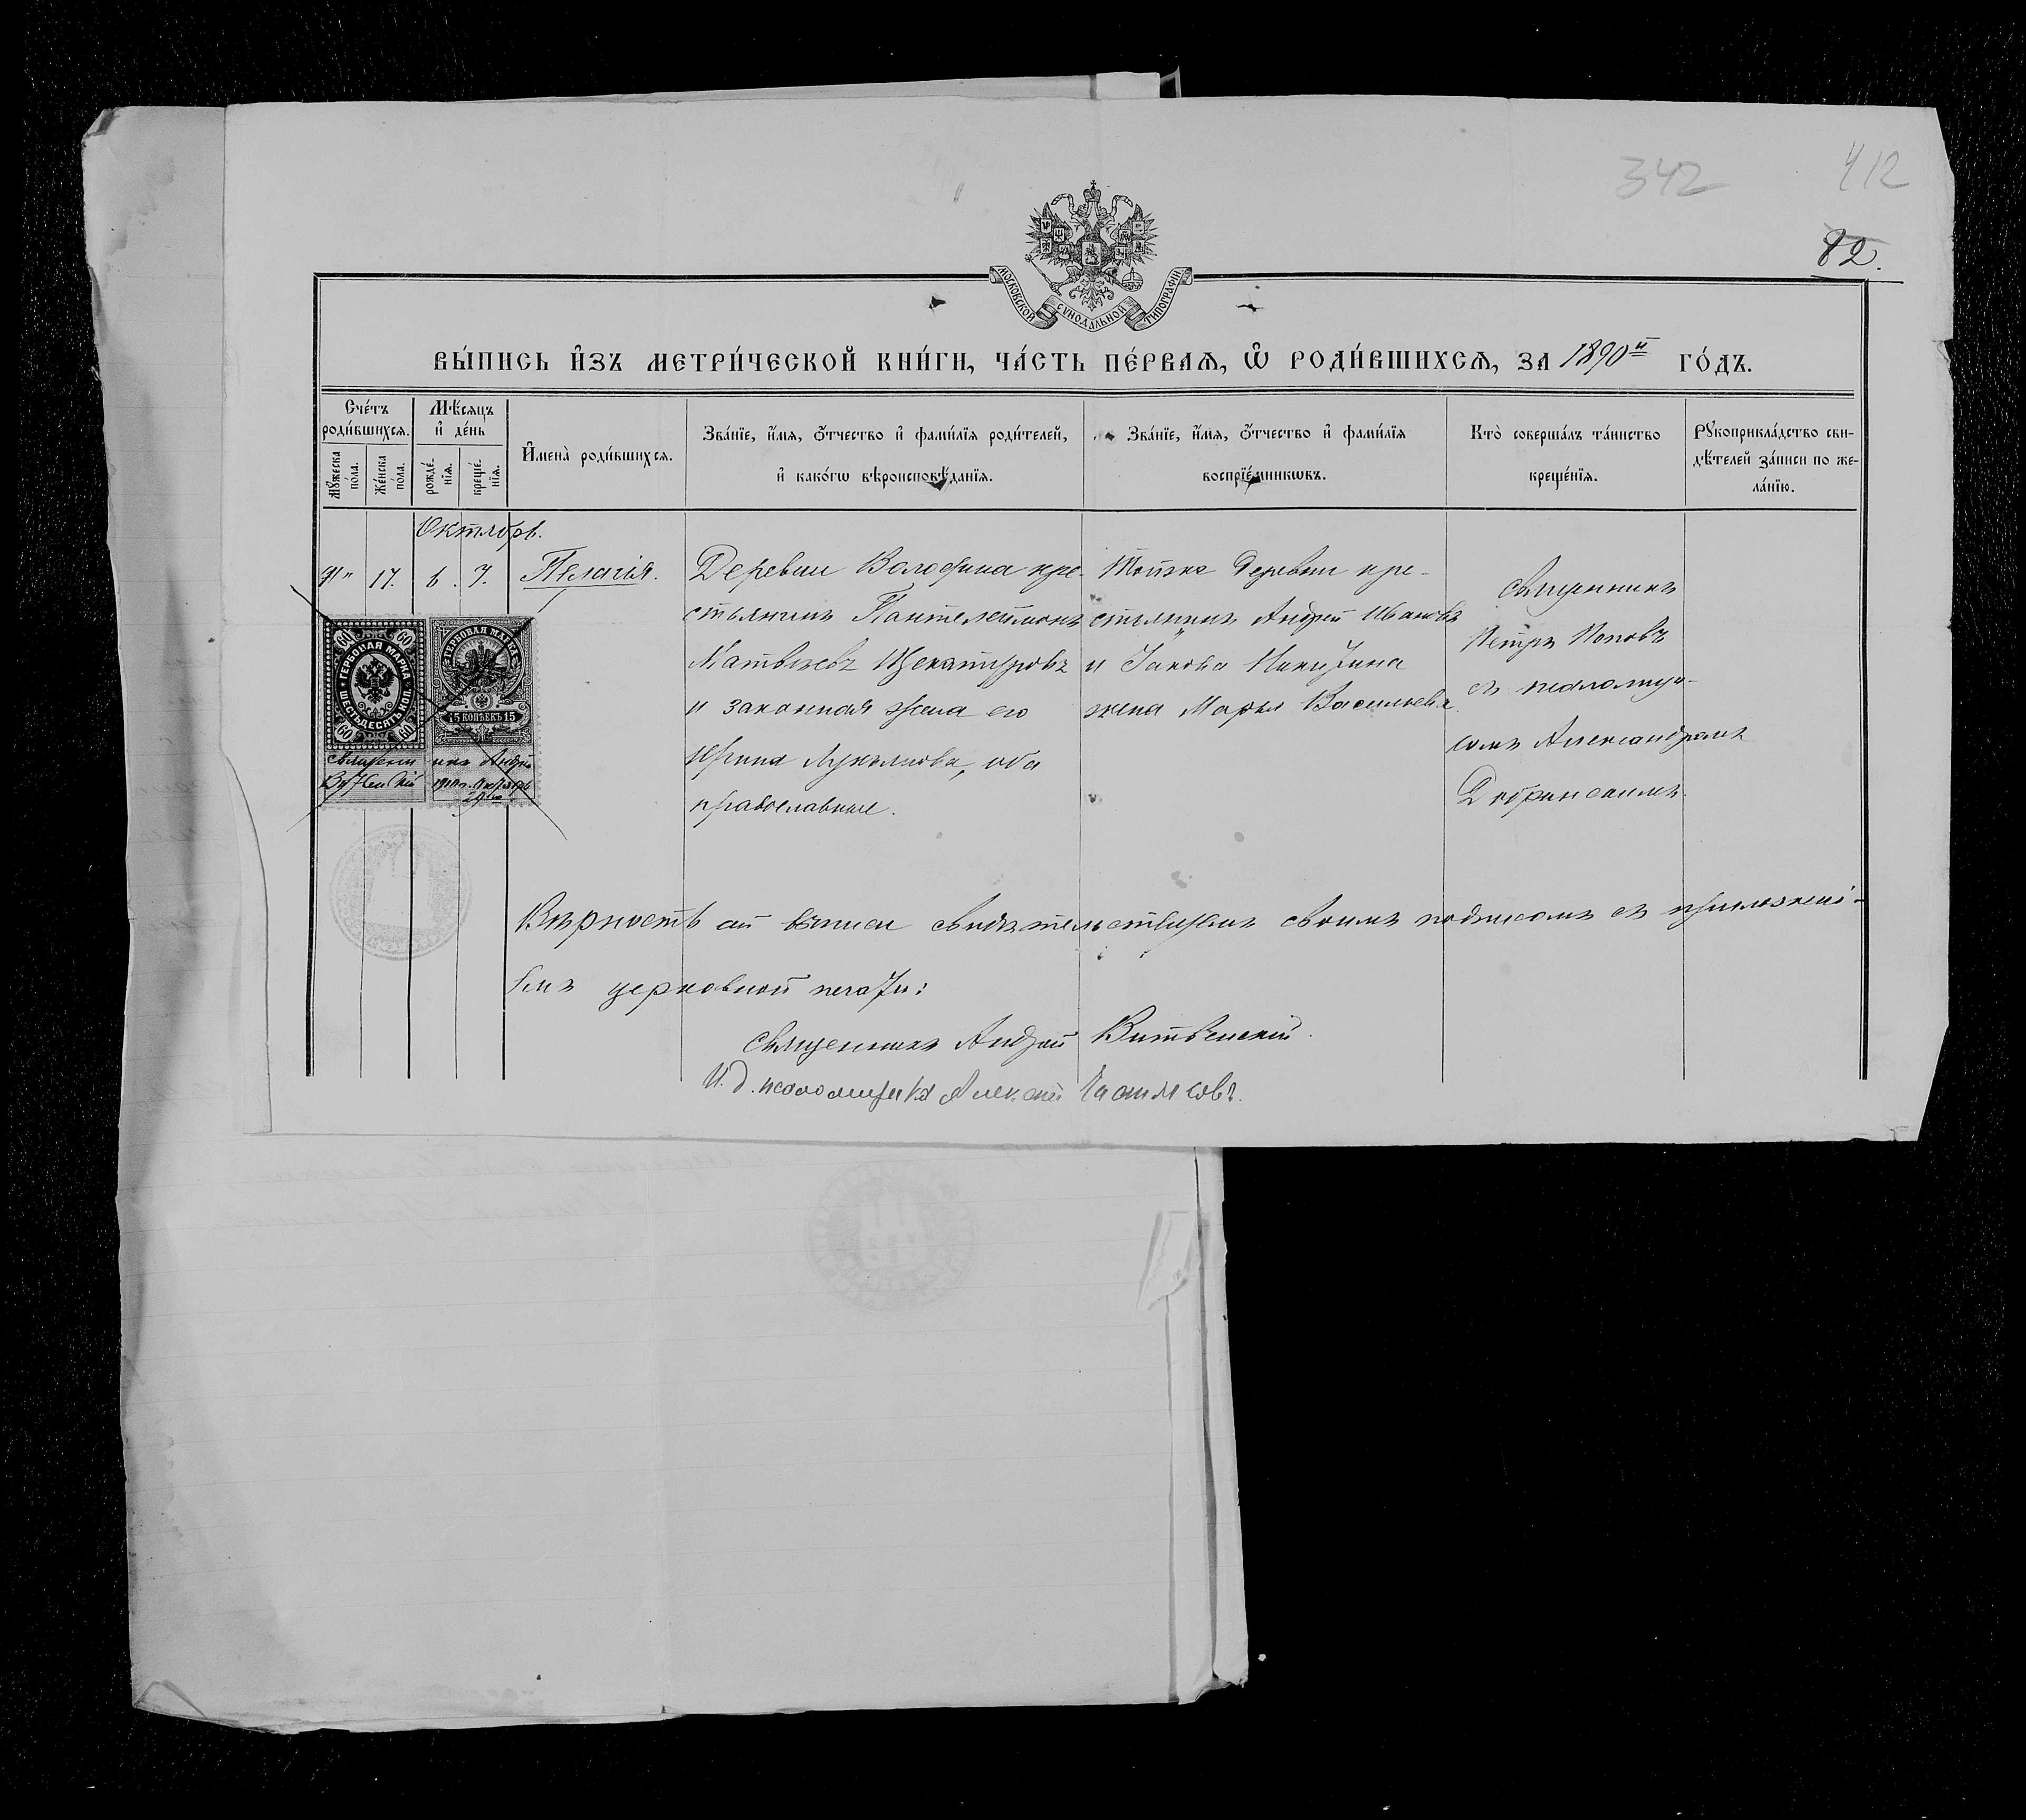 342
412
82.
МОСКОВСКОЙ СѴНОДАЛЬНОЙ ТИПОГРАФІИ
ВЫ́ПИСЬ И҆ЗЪ МЕТРИ́ЧЕСКОЙ КНИ́ГИ, ЧА́СТЬ ПЕ́РВАѦ, Ѡ҆ РОДИ́ВШИХСѦ, ЗА 1890й ГО́ДЪ.
Сче́тъ роди́вшихсѧ.
Мꙋ́жеска по́ла.
Же́нска по́ла.
Мѣ́сѧцъ и҆ де́нь
рожде́нїѧ.
креще́нїѧ.
И҆мена̀ роди́вшихсѧ.
Зва́нїе, и҆́мѧ, ѻ҆́тчество и҆ фами́лїѧ роди́телей,
и҆ како́гѡ вѣроисповѣ́данїѧ.
Зва́нїе, и҆́мѧ, ѻ҆́тчество и҆ фами́лїѧ
воспрїе́мникѡвъ.
Кто̀ соверша́лъ та́инство
креще́нїѧ.
Рꙋкоприкла́дство сви-
дѣ́телей за́писи по же-
ла́нїю.
Октябрь.
17. 6. 7. Пелагія.
Деревни Володина кре-
стьянинъ Пантелеимонъ
Матвѣевъ Щекатуровъ
и законная жена его
Ирина Лукьянова, оба
православные.
Тойже деревни кре-
стьянинъ Андрей Ивановъ
и Іакова Никитина
жена Марья Васильева.
Священникъ
Петръ Поповъ
съ псаломщи-
комъ Александромъ
Добринскимъ.
ГЕРБОВАЯ МАРКА
ШЕСТЬДЕСЯТЪ КОП.
60 60 60 60
ГЕРБОВАЯ МАРКА
15 КОПѢЕКЪ 15
Священникъ Андрей
Витвенскій 1910 г. Октября
29го
Вѣрность сей выписи свидѣтельствуемъ своимъ подписомъ съ приложені-
емъ церковной печати:
Священникъ Андрей Витвенскій.
И. д. псаломщика Алексѣй